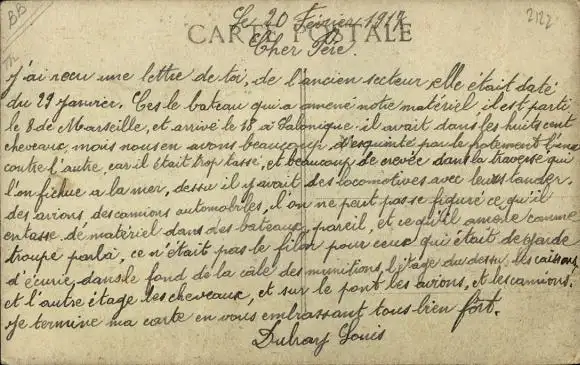 BB
2122
Le 20 Février 1917
CARTE POSTALE
Cher Père.
J'ai reçu une lettre de toi, de l'ancien secteur, elle était daté
du 29 Janvier. Ces le bateau qui a amené notre matériel il est parti
le 8 de Marseille, et arrivé le 18, a Salonique. il avait dans les huits cent
chevaux, mais nous en avons beaucoup d'esquinté par le frotement l'une
contre l'autre, car il était trop tassé, et beaucoup de crevée dans la traversé qui
l'on fichue a la mer, dessu il y avait des locomotives avec leurs tander.
des avions, des camions automobiles, il on ne peut pas se figuré ce qu'il
entasse de matériel dans des bateaux pareil, et ce qu'il amène comme
troupe par la, ce n'était pas le filon pour ceux qui était de garde
d'écurie, dans le fond de la câle des munitions, l'étage du dessu, les caissons,
et l'autre étage les cheveaux, et sur le pont les avions, et les camions.
Je termine ma carte en vous embrassant tous bien fôrt.
Louis